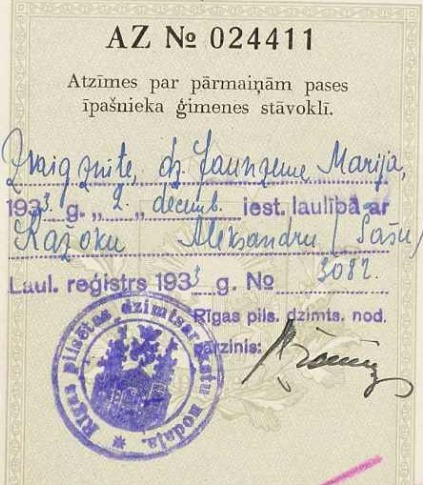 AZ № 024411
Atzīmes par pārmaiņām pases
īpašnieka ģimenes stāvoklī.
Zvaigznīte, dz. Jaunzeme Marija,
1933. g. „ 2. „ decemb. iest. laulībā ar
Kažoku Aleksandru / Sašu /
Laul. reģistrs 1933 g. № 3082.
Rīgas pils. dzimts. nod.
pārzinis:
Rīgas pilsētas dzimtsarakstu nodaļa.